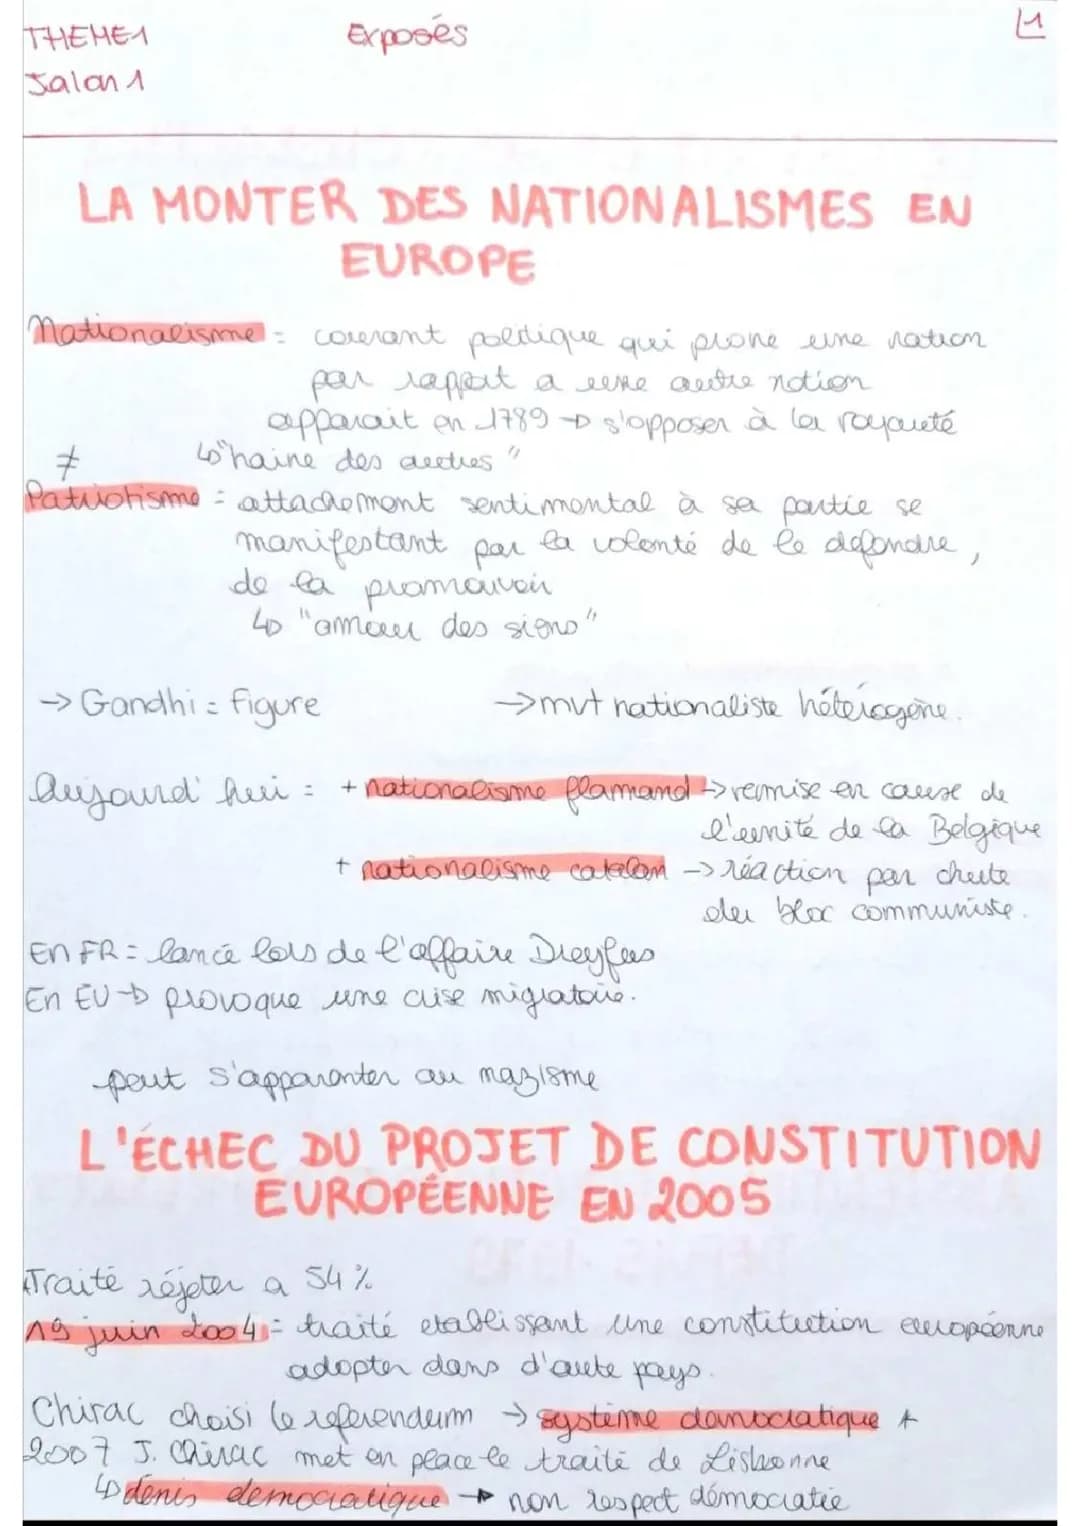 THEME1 Exposés 1
Jalon 1
LA MONTER DES NATIONALISMES EN
EUROPE
Nationalisme = courant politique qui prone une nation
par rapport a une autre notion
apparait en 1789 → s'opposer à la royauté
≠ ↳ "haine des autres"
Patriotisme = attachement sentimental à sa partie se
manifestant par la volonté de le défendre,
de la promouvoir
↳ "amour des siens"
→ Gandhi = figure → mvt nationaliste hétérogène.
Aujourd'hui = + nationalisme flamand → remise en cause de
l'unité de la Belgique
+ nationalisme catalan → réaction par chute
du bloc communiste.
En FR = lancé lors de l'affaire Dreyfus
En EU → provoque une crise migratoire.
peut s'apparenter au nazisme
L'ÉCHEC DU PROJET DE CONSTITUTION
EUROPÉENNE EN 2005
Traité réjeter a 54 %
19 juin 2004 = traité etablissant une constitution européenne
adopter dans d'autre pays.
Chirac choisi le referendum → système democratique +
2007 J. Chirac met en place le traité de Lisbonne
↳ dénis democratique → non respect démocratie